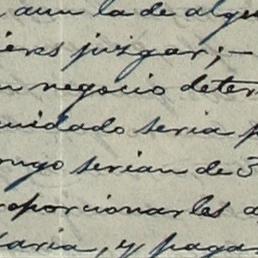 aun la de algu
juzgar;—
n negocio deter
uidado seria p
serian de 3
roporcionarles a
taria, y paga